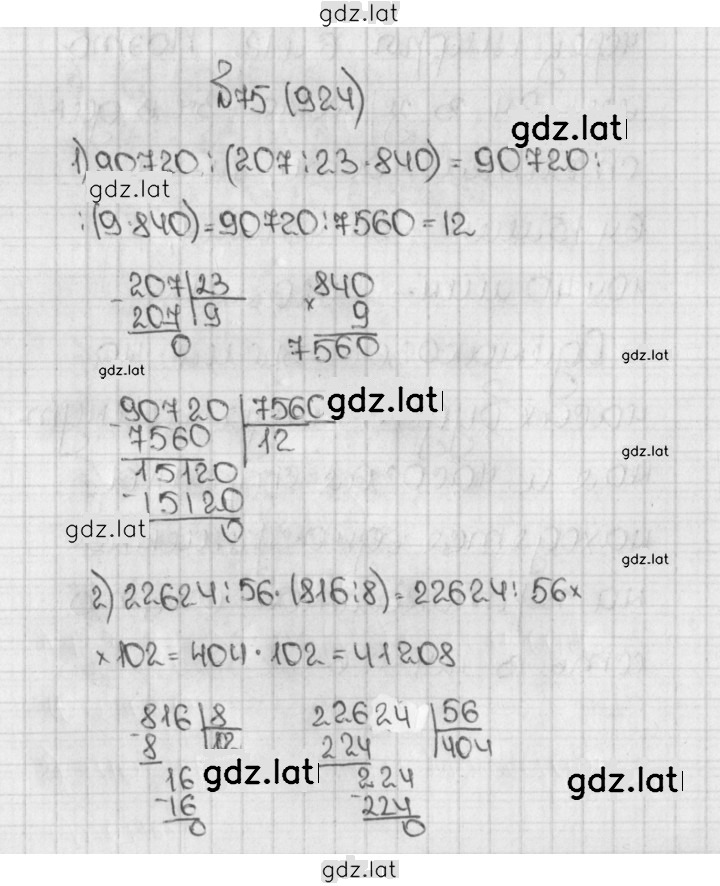 gdz.lat
№75 (924)
gdz.lat
1) 90720:(207:23·840)=90720:
gdz.lat
:(9·840)=90720:7560=12
207 23 840
207 9 × 9
0 7560
gdz.lat
gdz.lat
90720 7560 gdz.lat
7560 12
15120
gdz.lat
15120
gdz.lat 0
gdz.lat
2) 22624:56·(816:8)=22624:56×
×102=404·102=41208
816 8 22624 56
8 102 224 404
16 gdz.lat 224 gdz.lat
16 224
0 0
gdz.lat